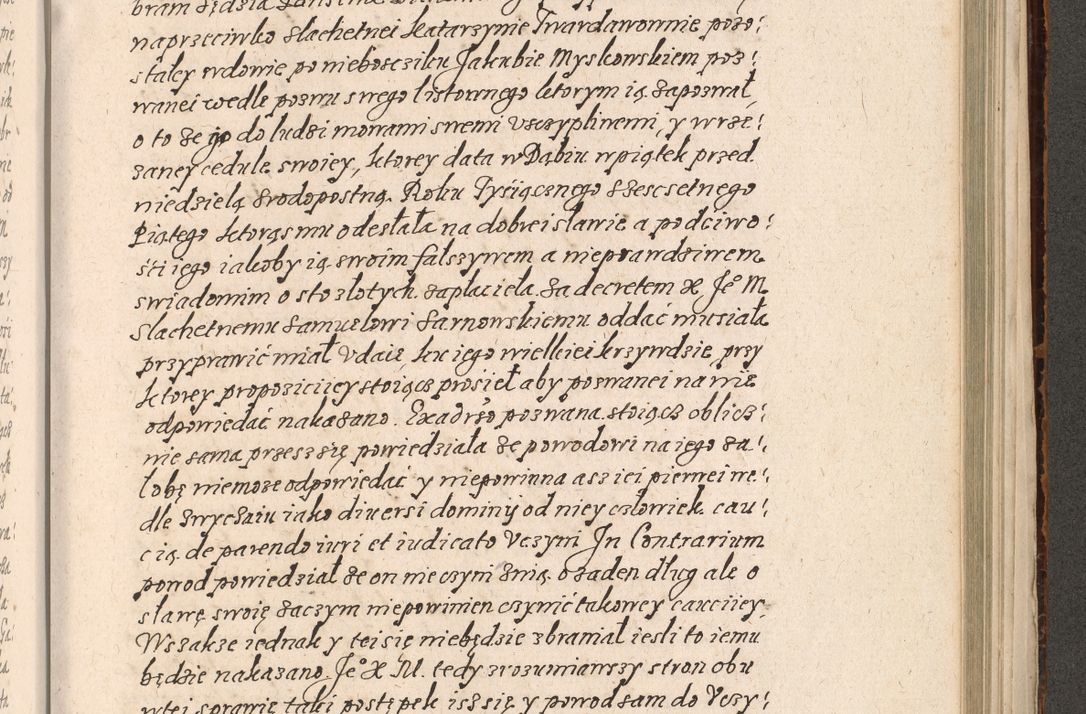 naprzeciwko slachetnei Katarzynie Twardawownie pozo:
stałey wdowie po nieboszcziku Jakubie Myskowskiem poz:
wanei wedle pozwu swego listownego ktorym ią zapozwał,
o to że go do ludzi mowami swemi vsczyplinemi, y wrze:
zaney cedule swoiey, ktorey data w Dąbiu w piątek przed
niedzielą srodopostną. Roku Tysiącznego szescsetnego
Piątego ktorąs mu odesłała na dobrei sławie a podciwo:
ści iego iakoby ią swoim fałszywem a nieprawdziwem
swiadomim o sto złotych zapłaciela. Za decretem X Je° M
slachetnemu Samuelowi Sarnowskiemu oddać musiała
przyprawić miał vdaię ku iego wielkiei krzywdzie, przy
ktorey propoziciiey stoiącz prosieł aby pozwanei na nię
odpowiedać nakazano. Ex adrso pozwana stoiącz oblicz:
nie sama przesz się powiedziała że powodowi na iego ża:
łobę niemoze odpowiedać y niepowinna asz iei pierwei we:
dle zwyczaiu iako diuersi dominy od niey człowiek cau:
cią de parendo iuri et iudicato vczyni In Contrarium
powod powiedział że on nie czyni z nią o żaden dług ale o
sławę swoię zaczym niepowinien czynić takowey cauciiey.
Wszakze iednak y tei się niebędzie zbraniał iesli to iemu
będzie nakazano Je° X M. tedy zrozumiawszy stron obu
wtei sprawie taki postępek isz się y powod sam do vczy: